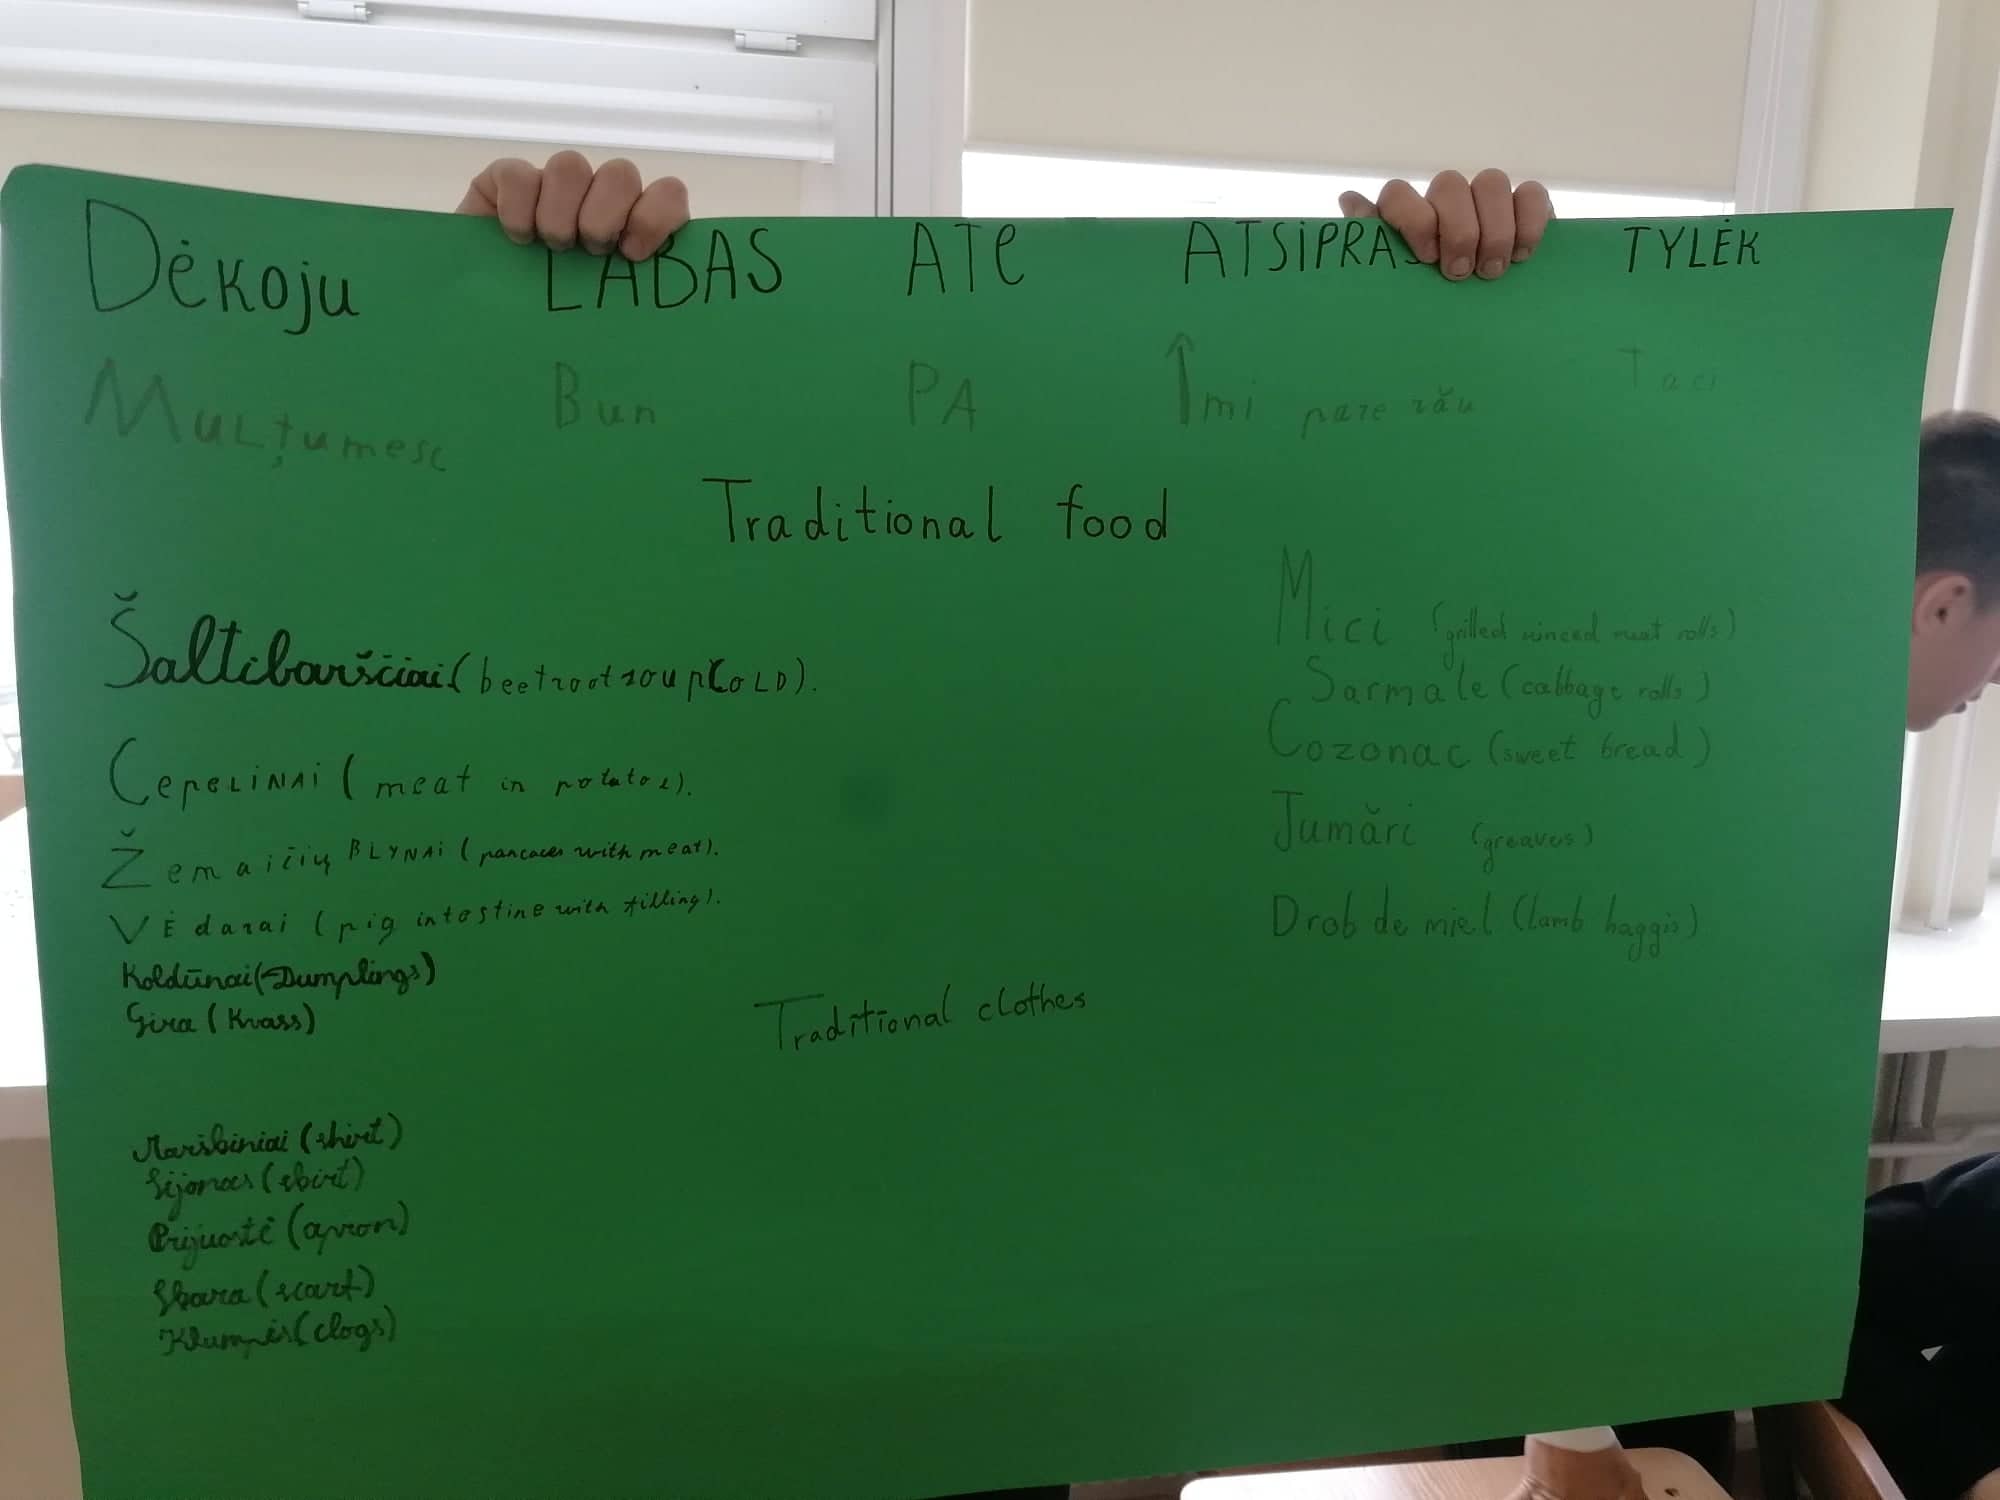 Dėkoju LABAS ATE TYLĖK
Mulțumesc Bun PA Îmi pare rău Taci
Traditional food
Šaltibarščiai (beetroot soup COLD).
Cepelinai (meat in potatoe).
Žemaičių BLYNAI (pancaces with meat).
VĖdarai (pig intestine with filling).
Koldūnai (Dumplings)
Gira (Kvass)
Mici (grilled minced meat rolls)
Sarmale (cabbage rolls)
Cozonac (sweet bread)
Jumări (greaves)
Drob de miel (lamb haggis)
Traditional clothes
Marškiniai (shirt)
Sijonas (skirt)
Prijuostė (apron)
Skara (scarf)
Klumpės (clogs)